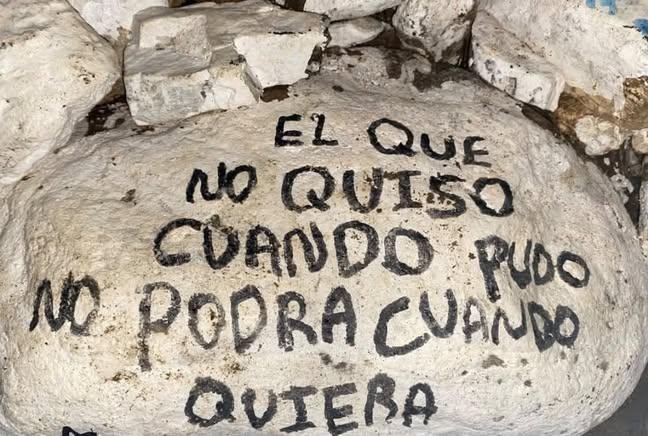 EL QUE
NO QUISO
CUANDO PUDO
NO PODRA CUANDO
QUIERA